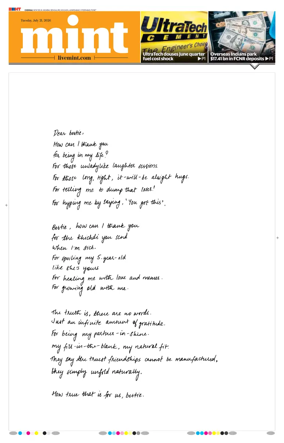 mint
Tuesday, July 21, 2026
mint
livemint.com
UltraTech
CEMENT
The Engineer's Choice
UltraTech douses June quarter
fuel cost shock ▶P1
Overseas Indians park
$17.41 bn in FCNR deposits ▶P1
Dear bestie,
How can I thank you
for being in my life?
For those unladylike laughter sessions
For those long, tight, it-will-be alright hugs
For telling me to dump that loser!
For hyping me by saying, 'You got this'.
Bestie, how can I thank you
for the khichdi you send
when I'm sick.
For spoiling my 5-year-old
like she's yours
For healing me with love and memes.
For growing old with me.
The truth is, there are no words.
Just an infinite amount of gratitude.
For being my partner-in-shine.
my fill-in-the-blank, my natural fit.
They say the truest friendships cannot be manufactured,
they simply unfold naturally.
How true that is for us, bestie.